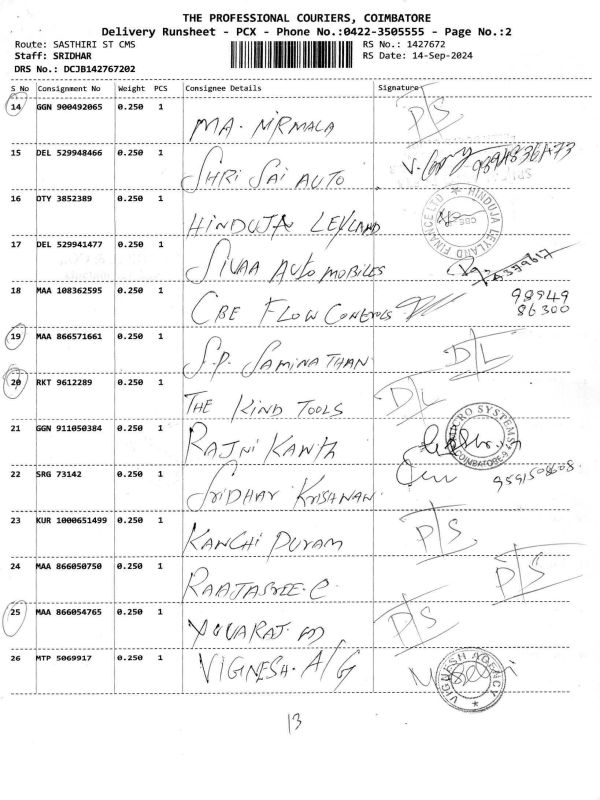 THE PROFESSIONAL COURIERS, COIMBATORE
Delivery Runsheet - PCX - Phone No.:0422-3505555 - Page No.:2
Route: SASTHIRI ST CMS RS No.: 1427672
Staff: SRIDHAR RS Date: 14-Sep-2024
DRS No.: DCJB142767202
S No Consignment No Weight PCS Consignee Details Signature
14 GGN 900492065 0.250 1 MA. NIRMALA D/S
15 DEL 529948466 0.250 1 SHRI SAI AUTO
16 OTY 3852389 0.250 1 HINDUJA LEYLAND HINDUJA LEYLAND FINANCE LTD CBE
17 DEL 529941477 0.250 1 SIVAA AUTOMOBILES
18 MAA 108362595 0.250 1 CBE FLOW CONTROLS 98949
86300
19 MAA 866571661 0.250 1 S.P. SAMINATHAN D/L
20 RKT 9612289 0.250 1 THE KIND TOOLS D/L
21 GGN 911050384 0.250 1 RAJNI KANTH MICRO SYSTEMS COIMBATORE-9
22 SRG 73142 0.250 1 SRIDHAR KRISHNAN 9591508908
23 KUR 1000651499 0.250 1 KANCHI PURAM D/S
24 MAA 866050750 0.250 1 RAAJASREE.C D/S
25 MAA 866054765 0.250 1 YUVARAJ. M D/S
26 MTP 5069917 0.250 1 VIGNESH. A/G VIGNESH AGENCY
13